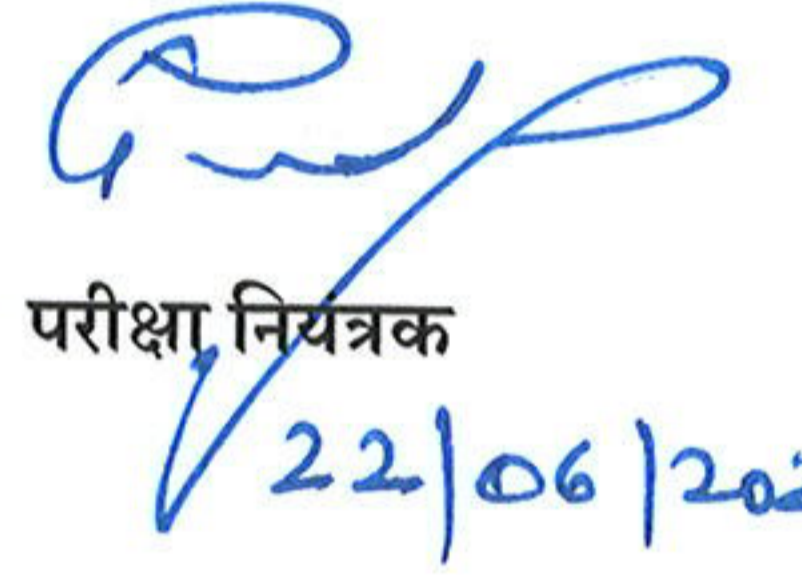 परीक्षा नियंत्रक
22/06/202